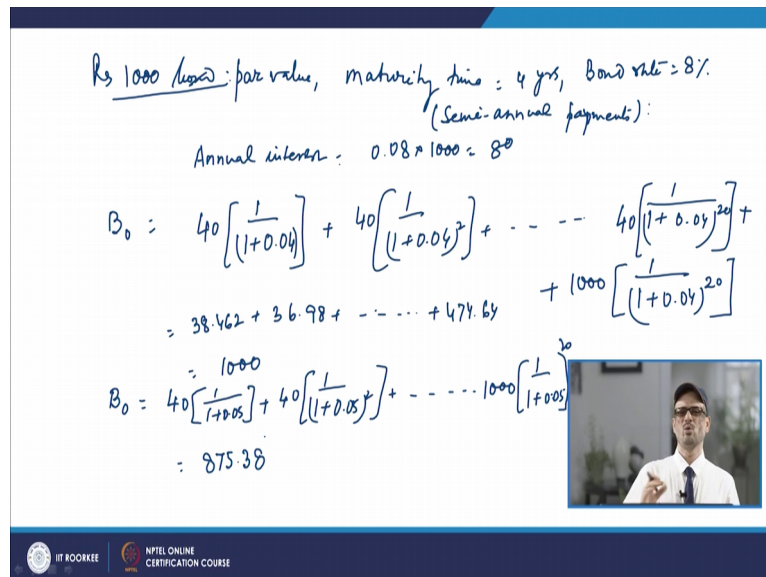 Rs 1000 : par value, maturity time = 4 yrs, Bond rate = 8%
(Semi-annual payments) :
Annual interest = 0.08 * 1000 = 80
B₀ = 40[1/(1+0.04)] + 40[1/(1+0.04)²] + - - -- 40[1/(1+0.04)²⁰] +
+ 1000[1/(1+0.04)²⁰]
= 38.462 + 36.98 + -- -- ... + 474.64
= 1000
B₀ = 40[1/1+0.05] + 40[1/(1+0.05)²] + - - - .... 1000[1/1+0.05]²⁰
= 875.38
IIT ROORKEE
NPTEL ONLINE
CERTIFICATION COURSE